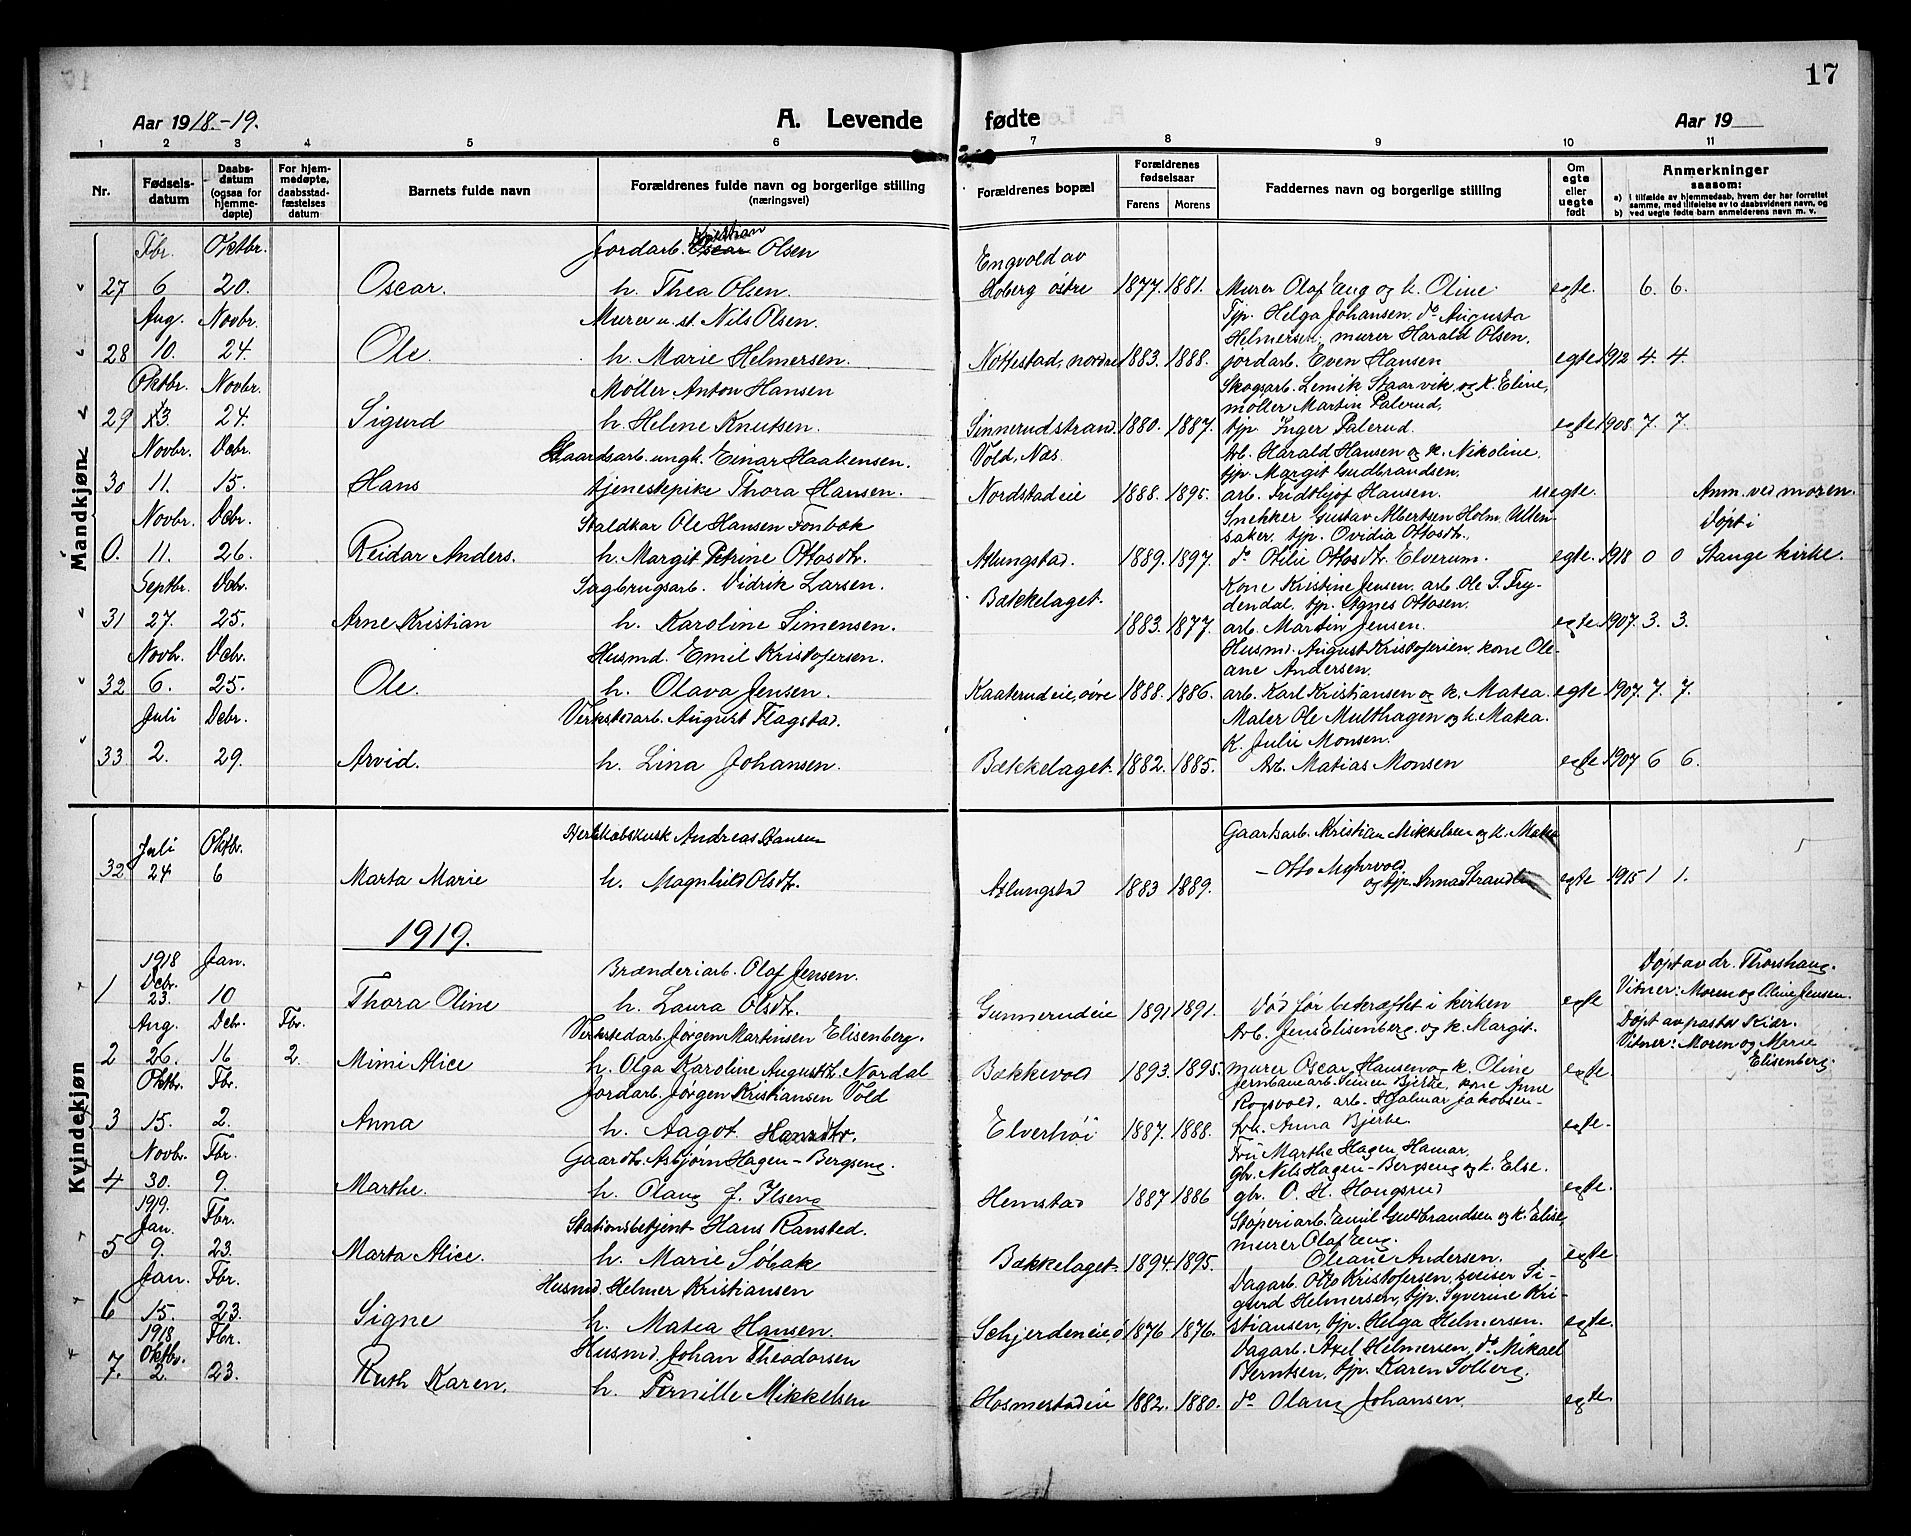 17
Aar 1918.-19.
A. Levende fødte
Aar 19
1 2 3 4 5 6 7 8 9 10 11
Nr.
Fødsels-
datum
Daabs-
datum
(ogsaa for
hjemme-
døpte)
For hjem-
medøpte,
daabsstad-
fæstelses
datum
Barnets fulde navn
Forældrenes fulde navn og borgerlige stilling
(næringsvei)
Forældrenes bopæl
Forældrenes
fødselsaar
Farens Morens
Faddernes navn og borgerlige stilling
Om
egte
eller
uegte
født
Anmerkninger
saasom:
a) i tilfælde av hjemmedaab, hvem der har forrettet
samme, med tilføielse av to daabsvidners navn, og
b) ved uegte fødte barn anmelderens navn m. v.
Mandkjøn
Fbr. Oktbr. Jordarb. Kristian Oscar Olsen Engvold av
27 6 20. Oscar. h. Thea Olsen. Hoberg østre 1877. 1881. Murer Olaf Eng og k. Oline. egte. 6. 6.
Aug. Novbr. Murer u. st. Nils Olsen. Tjp. Helga Johansen, do Augusta
Helmersen, murer Harald Olsen,
28 10. 24. Ole. h. Marie Helmersen. Nøttestad, nordre 1883. 1888. jordarb. Even Hansen egte 1912 4. 4.
Oktbr. Novbr. Møller Anton Hansen Skogsarb. Lemik Staarvik og k. Eline,
møller Martin Palerud,
29 13. 24. Sigurd h. Helene Knutsen. Sinnerudstrand 1880. 1887. tjp. Inger Palerud. egte 1908 7. 7.
Novbr. Dcbr. Gaardsarb. ungk. Einar Haakensen. Vold, Næs. Arb. Harald Hansen og k. Nikoline,
tjp. Margit Gudbrandsen,
30 11. 15. Hans tjenestepike Thora Hansen. Nordstadeie 1888. 1895. arb. Fridthjof Hansen. uegte. Anm. ved moren.
Novbr. Dcbr. Staldkar Ole Hansen Fonbæk Snekker Gustav Albertsen Holm, Ullen-
saker, tjp. Ovidia Ottosdtr., Døpt i
0. 11. 26. Reidar Anders. h. Margit Petrine Ottosdtr. Atlungstad. 1889. 1897. do Otilie Ottosdtr. Elverum. egte. 1918 0 0 Stange kirke.
Septbr. Dcbr. Sagbrugsarb. Didrik Larsen. Bækkelaget. Kone Kristine Jensen, arb. Ole S. Fry-
dendal, tjp. Agnes Ottosen,
31 27. 25. Arne Kristian h. Karoline Simensen. 1883. 1877. arb. Martin Jensen. egte. 1907. 3. 3.
Novb. Dcbr. Husmd. Emil Kristofersen. Husmd. August Kristofersen, kone Ole-
ane Andersen.
32 6. 25. Ole. h. Olava Jensen. Kaaterudeie, øvre 1888. 1886. arb. Karl Kristiansen og k. Matea. egte 1907. 7. 7.
Juli Dcbr. Verkstedarb. August Flagstad. Maler Ole Multhagen og k. Matea.
K. Julie Monsen.
33 2. 29. Arvid. h. Lina Johansen. Bækkelaget. 1882. 1885. Arb. Matias Monsen egte 1907 6 6.
Kvindekjøn
Juli Oktbr. Herskabskusk Andreas Hansen Gaardsarb. Kristian Mikkelsen og k. Matea
32 24 6 Marta Marie h. Magnhild Olsdtr. Atlungstad 1883 1889. - Otto Myhrvold og tjp. Anna Strandli egte 1915 1 1.
1919.
1918 Jan. Brænderiarb. Olaf Jensen. Døpt av dr. Thorshaug.
1 Dcbr. 23. 10 Thora Oline h. Laura Olsdtr. Gunnerudeie 1891 1891. Død før bekræftet i kirken egte Vitner: Moren og Oline Jensen.
Aug. Dcbr. Fbr. Verkstedarb. Jørgen Martinsen Elisenberg. Arb. Jens Elisenberg og k. Margit. Døpt av pastor Kiær.
2 26. 16 2. Mimi Alice h. Olga Karoline Augustdtr. Nordal Bækkevold 1893. 1895. murer Oscar Hansen og k. Oline egte. Vitner: Moren og Marie Elisenberg.
Oktbr. Fbr. Jordarb. Jørgen Kristiansen Vold jernbanearb. Simen Bjerke, kone Anne
Rogsvold, arb. Hjalmar Jakobsen-
3 15. 2. Anna h. Aagot Hansdtr. Elverhøi 1887. 1888. Arb. Anna Bjerke. egte.
Novbr. Fbr. Gaardbr. Asbjørn Hagen-Bergseng. Fru Marthe Hagen, Hamar,
gbr. Nils Hagen-Bergseng og k. Else.
4 30. 9. Marthe. h. Olaug f. Ilseng Hemstad 1887 1886 gbr. O. H. Hougsrud egte.
1919 Jan. Fbr. Stationsbetjent Hans Ransted. Støperiarb. Emil Gudbrandsen og k. Elise,
murer Olaf Eng.
5 9. 23. Marta Alice. h. Marie Søbak Bækkelaget. 1894 1895. Oleane Andersen. egte
Jan. Fbr. Husmd. Helmer Kristiansen Dagarb. Otto Kristofersen, sveiser Si-
gurd Helmersen, tjp. Syverine Kri-
6 15. 23. Signe h. Matea Hansen. Schjerdeneie, ø 1876 1876. stiansen, tjp. Helga Helmersen. egte.
1918 Fbr. Husmd. Johan Theodorsen Dagarb. Axel Helmersen, do Mikael
Berntsen, tjp. Karen Solberg,
7. Oktbr. 2. 23. Ruth Karen. h. Pernille Mikkelsen Hosmestadeie 1882. 1880. do Olaug Johansen. egte.